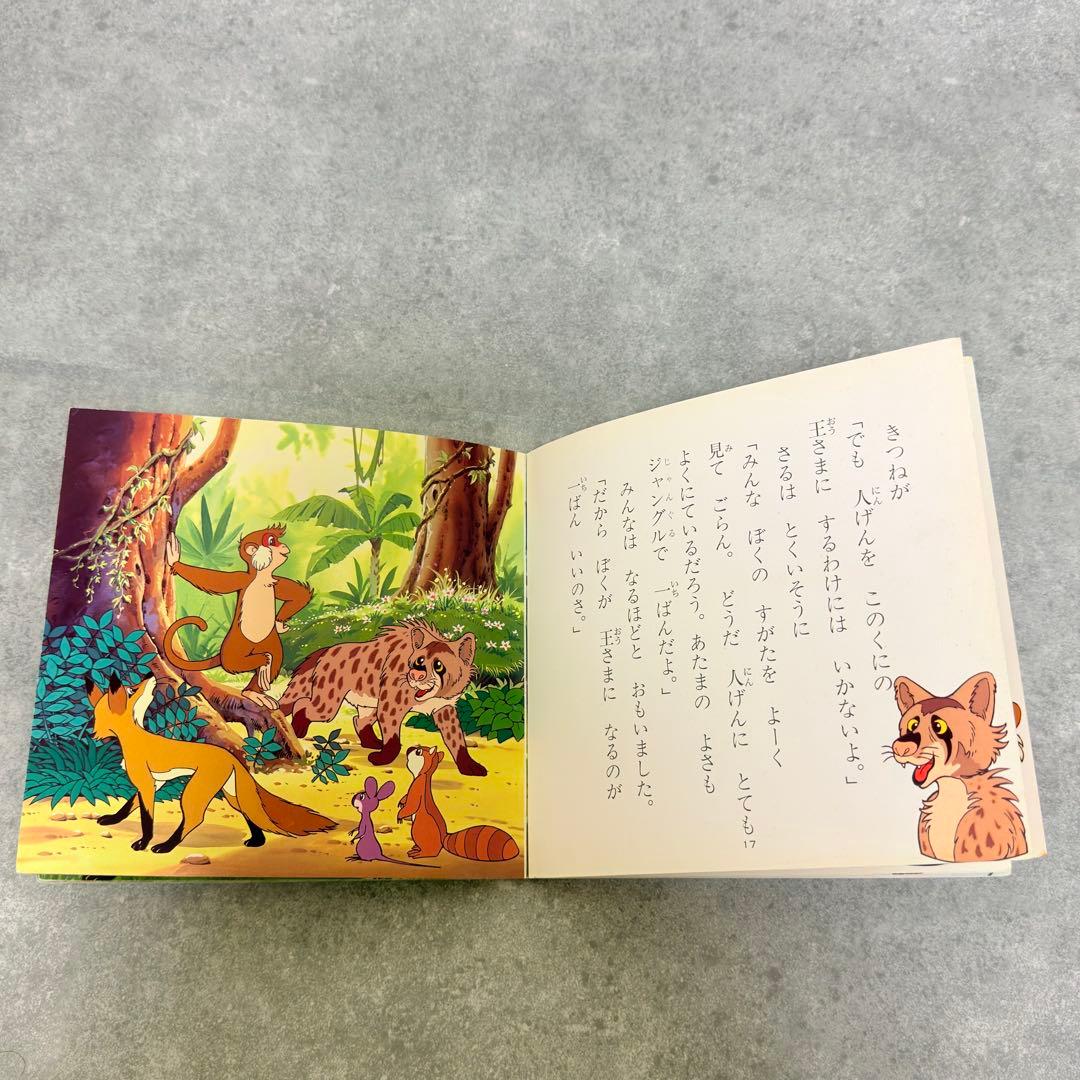 きつねが
「でも 人げんを このくにの
王さまに するわけには いかないよ。」
さるは とくいそうに
「みんな ぼくの すがたを よーく
見て ごらん。 どうだ 人げんに とても
よくにているだろう。あたまの よさも
ジャングルで 一ばんだよ。」
みんなは なるほどと おもいました。
「だから ぼくが 王さまに なるのが
一ばん いいのさ。」
17